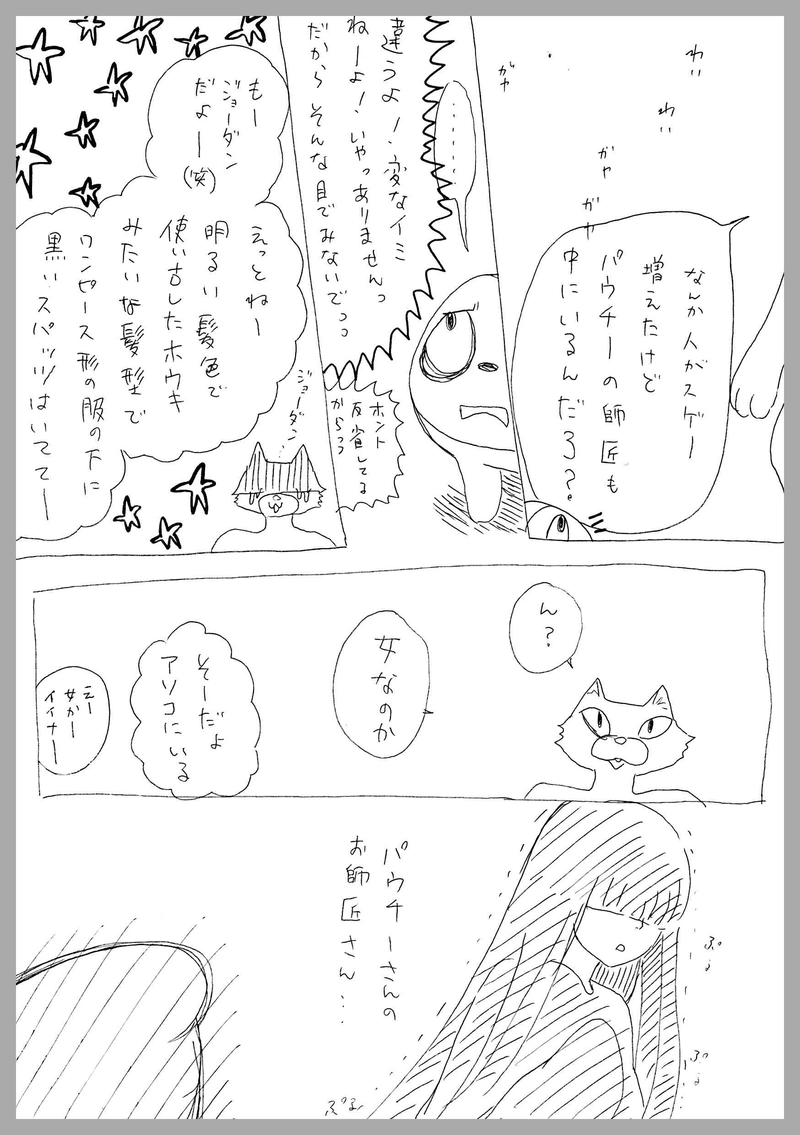 わい
わい
ガヤ
ガヤ
ガヤ
なんか人がスゲー
増えたけど
パウチーの師匠も
中にいるんだろ?
・・・・・
違うよ!変なイミ
ねーよ!いやっありませんっ
だからそんな目でみないでっっ
ホント
反省してる
からっっ
もー
ジョーダン
だよー(笑)
えっとねー
明るい髪色で
使い古したホウキ
みたいな髪型で
ワンピース形の服の下に
黒いスパッツはいててー
ジョーダン…
ん?
女なのか
そーだよ
アソコにいる
えー
女かー
イイナー
パウチーさんの
お師匠さん…
ぷる
ぷる
ぷるっ